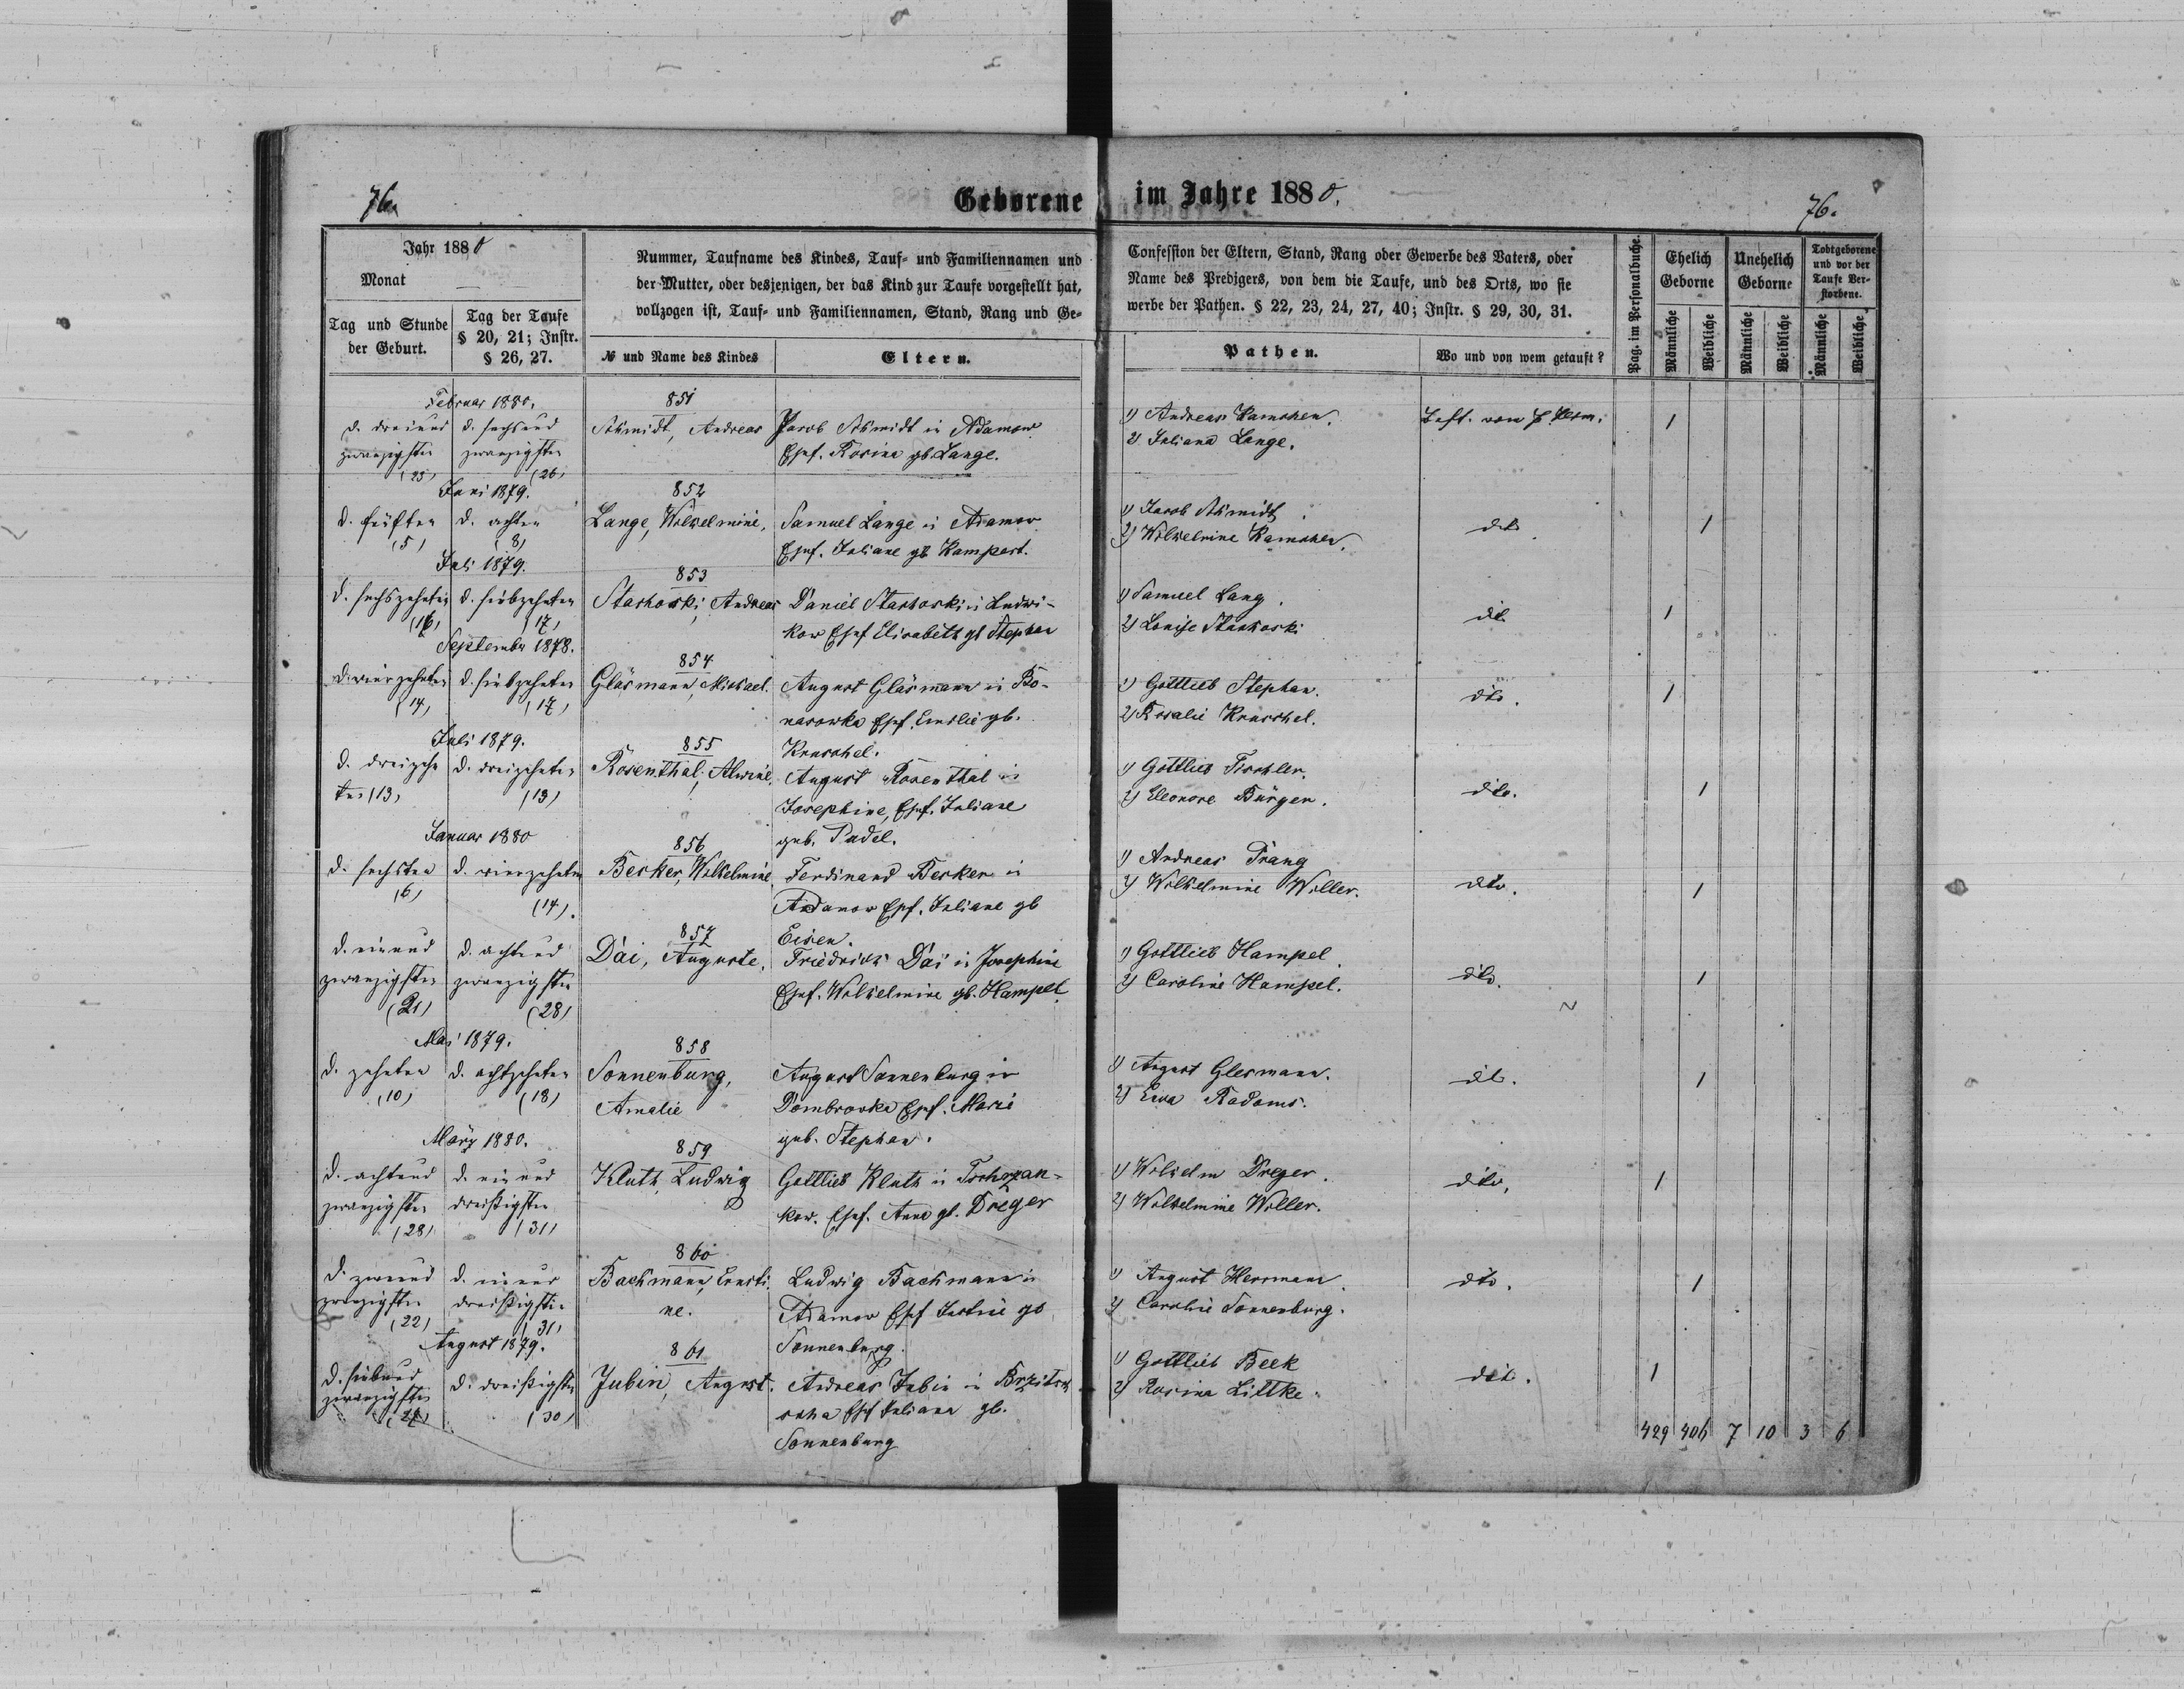 76.
Geborene im Jahre 1880.
76.
Jahr 1880
Monat
Tag und Stunde der Geburt.
Tag der Taufe § 20, 21; Instr. § 26, 27.
Nummer, Taufname des Kindes, Tauf- und Familiennamen und
der Mutter, oder desjenigen, der das Kind zur Taufe vorgestellt hat,
vollzogen ist, Tauf- und Familiennamen, Stand, Rang und Ge-
№ und Name des Kindes
Eltern.
Confession der Eltern, Stand, Rang oder Gewerbe des Vaters, oder
Name des Predigers, von dem die Taufe, und des Orts, wo sie
werbe der Pathen. § 22, 23, 24, 27, 40; Instr. § 29, 30, 31.
Pathen.
Wo und von wem getauft?
Pag. im Personalbuche.
Ehelich Geborne
Unehelich Geborne
Todtgeborene und vor der Taufe Verstorbene.
Männliche
Weibliche
Männliche
Weibliche
Männliche
Weibliche
Februar 1880.
851
d. dreiund
zwanzigsten
(23)
d. sechsund
zwanzigsten
(26)
Schmidt, Andreas
Jacob Schmidt in Adamow
Ehef. Rosina gb. Lange.
1) Andreas
2) Juliana Lange.
1
Juni 1879.
852
d. fünften
(5)
d. achten
(8)
Lange, Wilhelmine.
Samuel Lange in Adamow
Ehef. Juliane gb. Rampert.
1) Jacob Schmidt.
2) Wilhelmine
dito.
1
Juli 1879.
853
d. sechszehnten
(16)
d. siebzehnten
(17)
Stachoski, Andreas
Daniel Stachoski in Ludwi-
kow Ehef Elisabeth gb Stephan
1) Samuel Lang.
2) Louise Stachoski
dito
1
September 1878.
854
d. vierzehnten
(14)
d. siebzehnten
(17)
Gläsmann, Michael.
August Gläsmann in Bo-
narowka Ehef. Emilie gb.
Kruschel.
1) Gottlieb Stephan.
2) Rosalie Kruschel.
dito.
1
Juli 1879.
855
d. dreizehn
ten (13)
d. dreizehnten
(13)
Rosenthal, Alwine.
August Rosenthal in
Josephine, Ehef. Juliane
geb. Padel.
1) Gottlieb Tischler.
2) Eleonore Bürger.
dito.
1
Januar 1880
856
d. sechsten
(6)
d. vierzehnten
(14).
Becker, Wilhelmine.
Ferdinand Becker in
Adamow Ehef. Juliane gb
Eisen.
1) Andreas Prang
2) Wilhelmine Willer.
dito.
1
857
d. einund
zwanzigsten
(21)
d. achtund
zwanzigsten
(28)
Dai, Auguste.
Friedrich Dai in Josephine
Ehef. Wilhelmine gb. Hampel.
1) Gottlieb Hampel.
2) Caroline Hampel.
dito.
1
Mai 1879.
858
d. zehnten
(10)
d. achtzehnten
(18)
Sonnenburg,
Amalie
August Sonnenburg in
Dombrowka Ehef. Marie
geb. Stephan.
1) August Glesmann.
2) Ewa Radoms.
dito.
1
März 1880.
859
d. achtund
zwanzigsten
(28)
d. einund
dreißigsten
(31)
Kluth, Ludwig
Gottlieb Kluth in Tschrzan-
kow. Ehef. Anna gb. Dreger
1) Wilhelm Dreger.
2) Wilhelmine Willer.
dito.
1
860
d. zweiund
zwanzigsten
(22)
d. einund
dreißigsten
(31)
Bachmann, Ernsti-
ne.
Ludwig Bachmann in
Adamow Ehef Justine gb
Sonnenburg.
1) August Herrmann.
2) Caroline Sonnenburg.
dito.
1
August 1879.
861
d. siebund
zwanzigsten
(27)
d. dreißigsten
(30)
Jubin, August.
Andreas Jubin in Brzitsch
Ehef Juliana gb.
Sonnenburg
1) Gottlieb Beek
2) Rosina Littke.
dito.
1
429 406 7 10 3 6